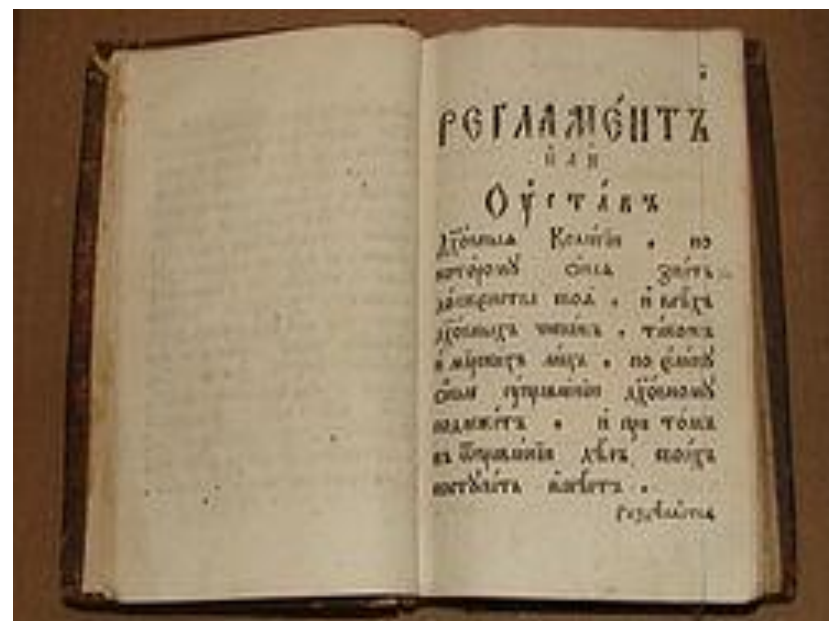 РЕГЛАМЕ́НТЪ
и҆лѝ
Оу҆ста́въ
Дꙋхо́вныѧ Колле́гїи , по
кото́ромꙋ Ѻ҆наѧ зна́ть
до́лженства своѧ̑ , и҆ всѣ́хъ
дꙋхо́вныхъ чинѡ́въ , та́кожъ
и҆ мїрски́хъ ли́цъ , по є҆ли́кꙋ
ѻ҆ныѧ ᲂу҆правле́нїю дꙋхо́вномꙋ
подлежа́тъ , и҆ при то́мъ
въ ѿправле́нїи дѣ́лъ свои́хъ
постꙋпа́ть и҆мѣ́етъ .